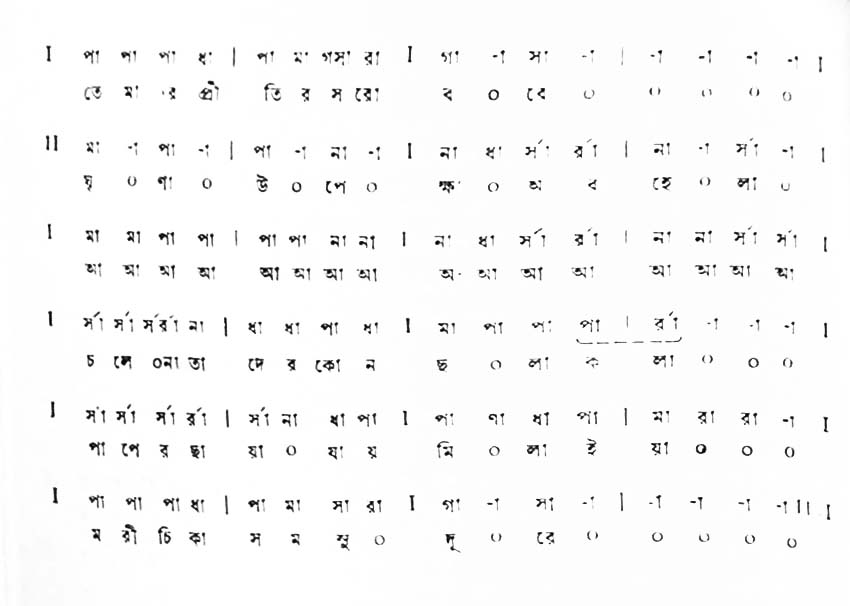 I পা পা পা ধা | পা মা গসা রা I গা -া সা -া | -া -া -া -া I
তে মা র প্রী তি র স রো ব ০ বে ০ ০ ০ ০ ০
II মা -া পা -া | পা -া না -া I না ধা র্সা র্রা | না -া র্সা -া I
ঘৃ ০ ণা ০ উ ০ পে ০ ক্ষা ০ অ ব হে ০ লা ০
I মা মা পা পা | পা পা না না I না ধা র্সা র্রা | না না র্সা র্সা I
আ আ আ আ আ আ আ আ আ আ আ আ আ আ আ আ
I র্সা র্সা র্সর্রা না | ধা ধা পা ধা I মা পা পা পা | র্রা -া -া -া I
চ লে ০না তা দে র কো ন ছ ০ লা ক লা ০ ০ ০
I র্সা র্সা র্সা র্রা | র্সা না ধা পা I পা ণা ধা পা | মা রা রা -া I
পা পে র ছা য়া ০ যা য় মি ০ লা ই য়া ০ ০ ০
I পা পা পা ধা | পা মা সা রা I গা -া সা -া | -া -া -া -া II I
ম রী চি কা স ম সু ০ দূ ০ রে ০ ০ ০ ০ ০